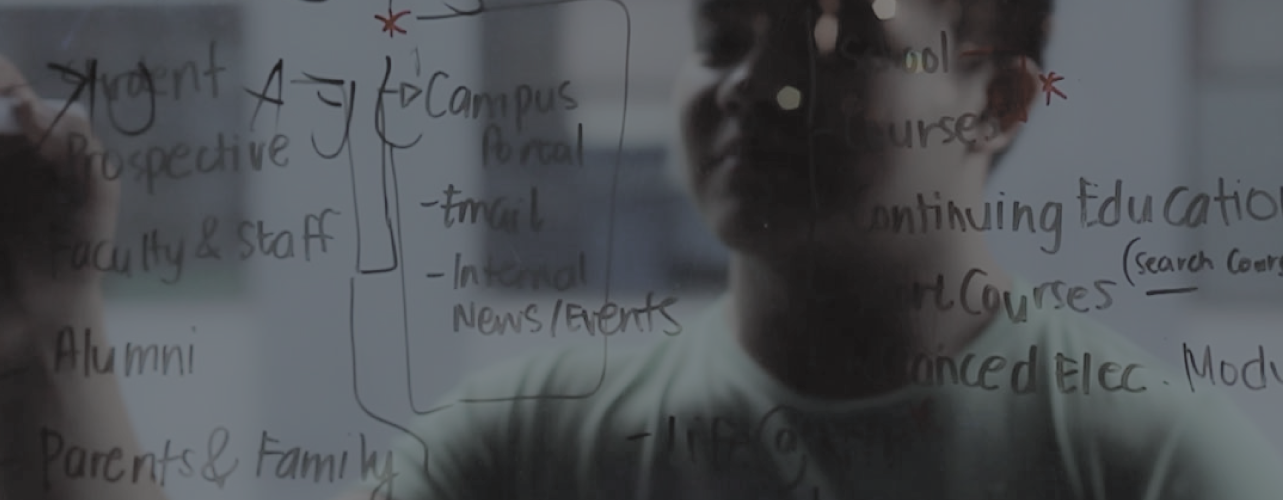 Prospective
Faculty & Staff
Alumni
Parents & Family
Campus
Portal
- Email
- Internal
News/Events
School
Courses
Continuing Educatio
Courses (Search Cour
Elec. Modu
- Life @